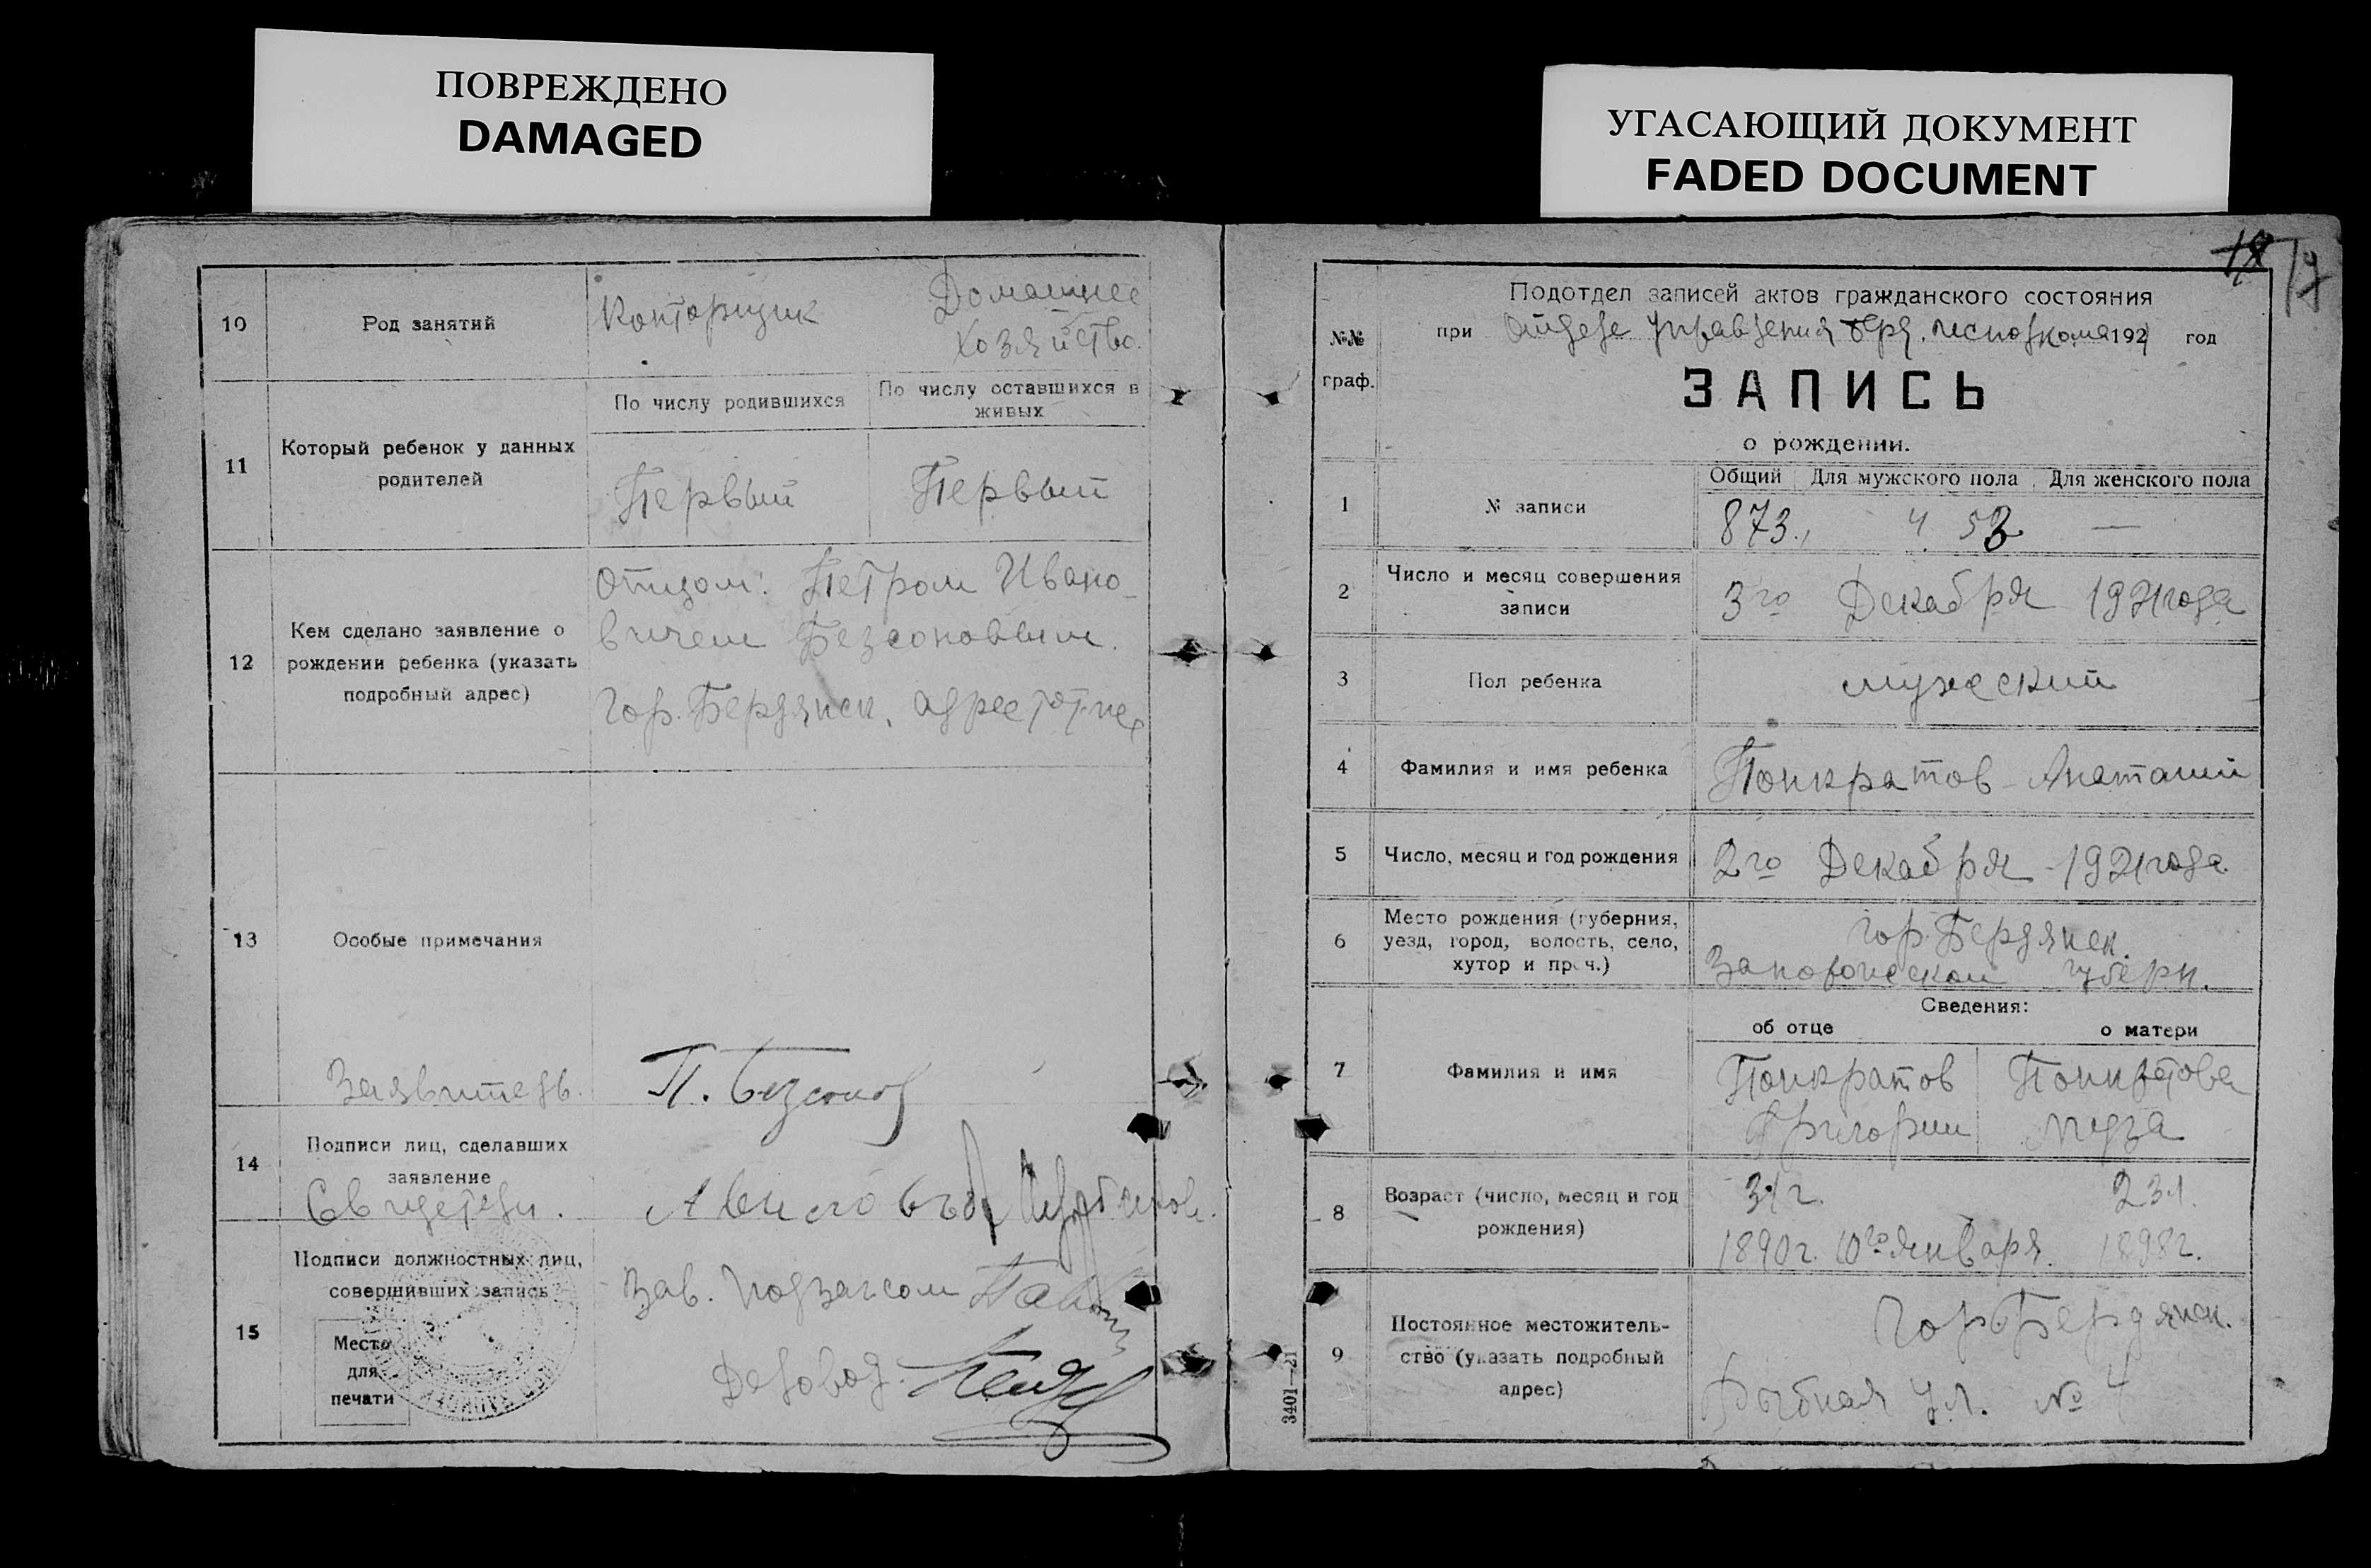 ПОВРЕЖДЕНО
DAMAGED
УГАСАЮЩИЙ ДОКУМЕНТ
FADED DOCUMENT
10
Род занятий
Конторщик
Домашнее
хозяйство.
11
Который ребенок у данных
родителей
По числу родившихся
По числу оставшихся в
живых
Первый
Первый
12
Кем сделано заявление о
рождении ребенка (указать
подробный адрес)
Отцом: Петром Ивано-
вичем Безсоновым.
Гор. Бердянск, адрес тот-же
13
Особые примечания
Заявитель.
П. Безсонов
14
Подписи лиц, сделавших
заявление
Свидетели.
15
Подписи должностных лиц,
совершивших запись
Место
для
печати
Зав. Подзагсом
Деловод.
18
19
№№
граф.
Подотдел записей актов гражданского состояния
при Отделе Управления Бер. исполкома 1921 год
ЗАПИСЬ
о рождении.
1
№ записи
Общий Для мужского пола Для женского пола
873., 453 —
2
Число и месяц совершения
записи
3го Декабря 1921 года
3
Пол ребенка
мужеский
4
Фамилия и имя ребенка
Понкратов - Анатолий
5
Число, месяц и год рождения
2го Декабря - 1921 года.
6
Место рождения (губерния,
уезд, город, волость, село,
хутор и проч.)
гор. Бердянск.
губерн.
Сведения:
об отце
о матери
7
Фамилия и имя
Понкратов
Григорий
Понкратова
8
Возраст (число, месяц и год
рождения)
31 г.
1890 г. 10го января.
23 л.
1898 г.
9
Постоянное местожитель-
ство (указать подробный
адрес)
Гор. Бердянск.
Рыбная ул. № 4
3401—21